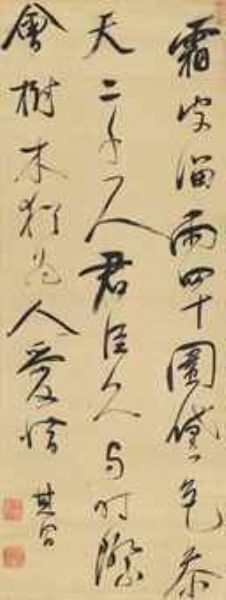 霜皮溜雨四十圍黛色參
天二千尺君臣已與時際
會樹木猶為人愛惜 其昌